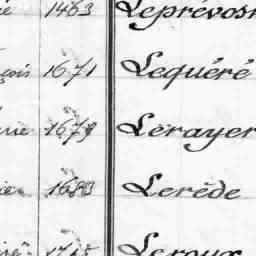 1483 Leprévost
1671 Lequéré
1679 Lerayer
1683 Lerède
Leroux